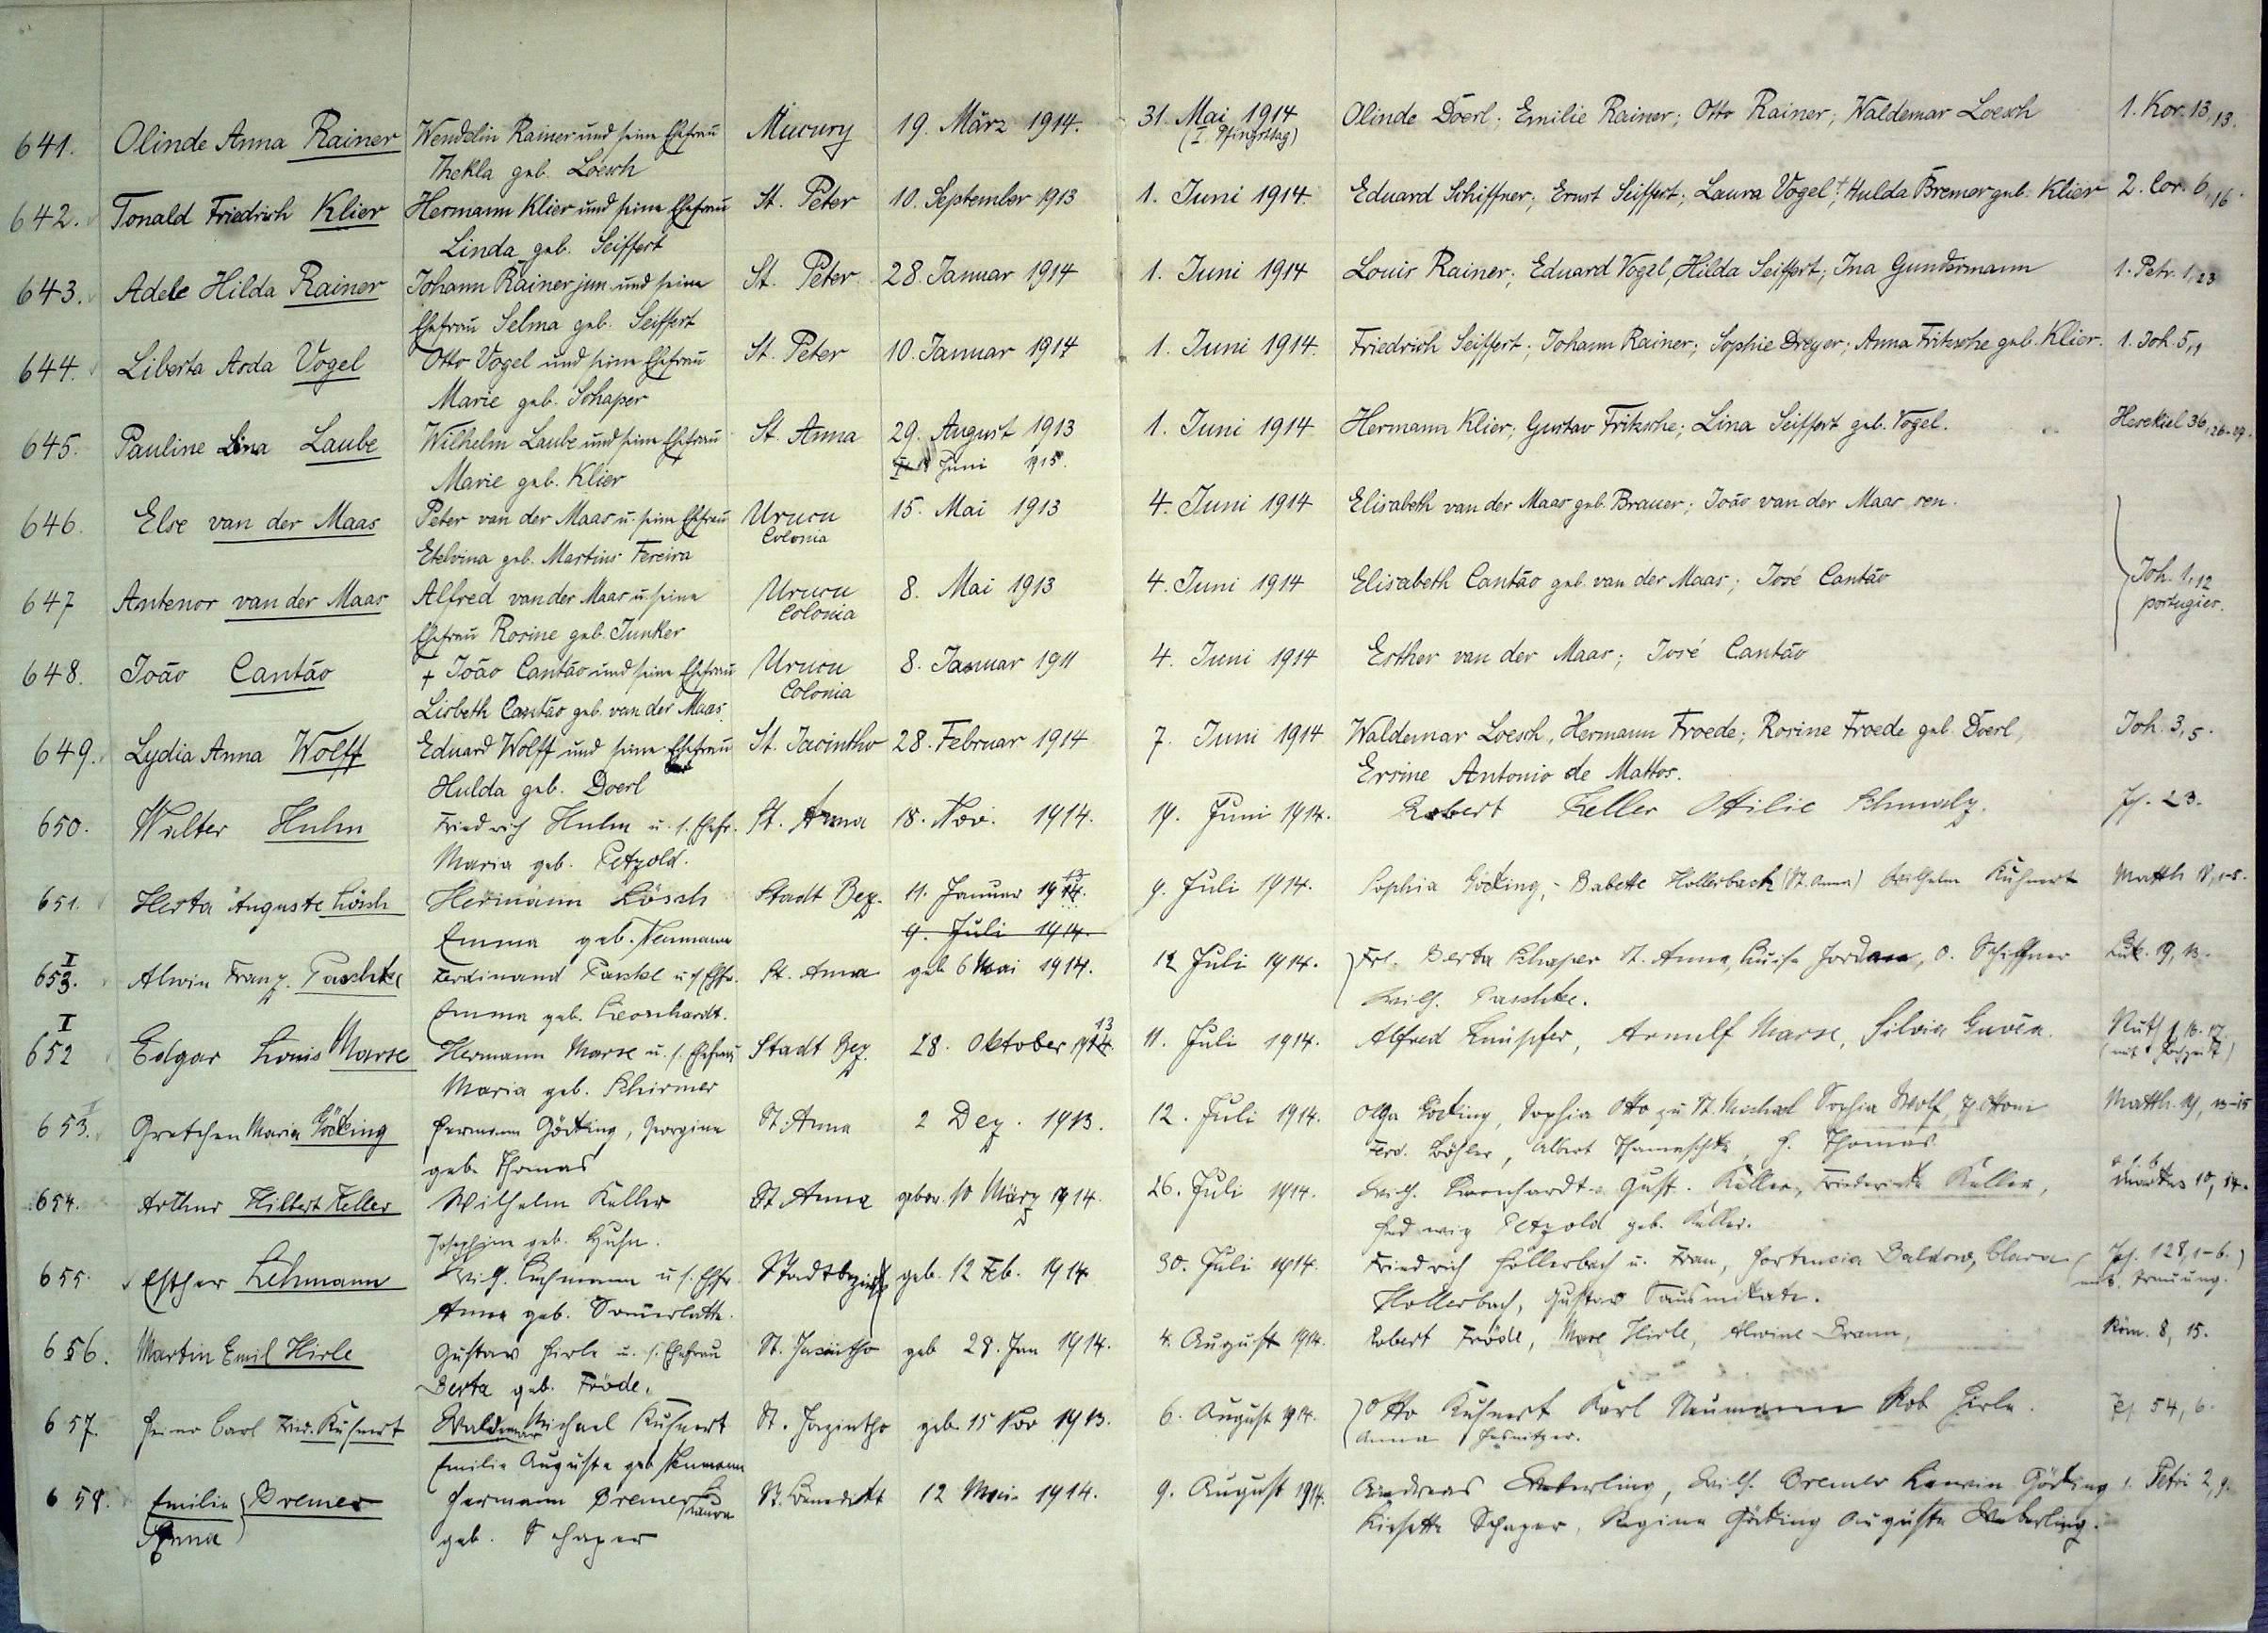 641. Olinde Anna Rainer Wendelin Rainer und seine Ehefrau Mucury 19. März 1914. 31. Mai 1914 Olinde Doerl; Emilie Rainer; Otto Rainer; Waldemar Loesch 1. Kor. 13,13.
Thekla geb. Loesch (I. Pfingsttag)
642. Tonald Friedrich Klier Hermann Klier und seine Ehefrau St. Peter 10. September 1913 1. Juni 1914. Eduard Schiffner; Ernst Seiffert; Laura Vogel; Hulda Bremer geb. Klier 2. Cor. 6,16.
Linda geb. Seiffert
643. Adele Hilda Rainer Johann Rainer jun. und seine St. Peter 28. Januar 1914 1. Juni 1914 Louis Rainer; Eduard Vogel, Hilda Seiffert; Ina Gundermann 1. Petr. 1,23
Ehefrau Selma geb. Seiffert
644. Liberta Asda Vogel Otto Vogel und seine Ehefrau St. Peter 10. Januar 1914 1. Juni 1914. Friedrich Seiffert; Johann Rainer; Sophie Dreyer; Anna Fritzsche geb. Klier. 1. Joh. 5,1
Marie geb. Schaper
645. Pauline Lina Laube Wilhelm Laube und seine Ehefrau St. Anna 29. August 1913 1. Juni 1914 Hermann Klier; Gustav Fritzsche; Lina Seiffert geb. Vogel. Hesekiel 36,26-27.
Marie geb. Klier Juni 1915.
646. Else van der Maas Peter van der Maas u. seine Ehefrau Urucu 15. Mai 1913 4. Juni 1914 Elisabeth van der Maas geb. Brauer; João van der Maas sen.
Etelvina geb. Martins Fereira Colonia
647 Antenor van der Maas Alfred van der Maas u. seine Urucu 8. Mai 1913 4. Juni 1914 Elisabeth Cantão geb. van der Maas; José Cantão Joh. 1,12
Ehefrau Rosine geb. Junker Colonia portugies.
648. João Cantão + João Cantão und seine Ehefrau Urucu 8. Januar 1911 4. Juni 1914 Esther van der Maas; José Cantão
Lisbeth Cantão geb. van der Maas. Colonia
649. Lydia Anna Wolff Eduard Wolff und seine Ehefrau St. Jacintho 28. Februar 1914 7. Juni 1914 Waldemar Loesch, Hermann Froede; Rosine Froede geb. Doerl, Joh. 3,5.
Hulda geb. Doerl Ersine Antonio de Mattos.
650. Walter Huhn Friedrich Huhn u. s. Ehefr. St. Anna 18. Nov. 1914. 19. Juni 1914. Robert Keller Ottilie Schmalz. Ps. 23.
Maria geb. Petzold.
651. Herta Auguste Lösch Hermann Lösch Stadt Bez. 11. Januar 1914. 13 9. Juli 1914. Sophia Göcking, Babette Hollerbach (St. Anna) Wilhelm Kuhnert Matth 18,1-5.
Emma geb. Neumann 9. Juli 1914.
I
653. Alwin Franz. Paschke Ferdinand Paschke u. s. Ehefr. St. Anna geb 6 Mai 1914. 12 Juli 1914. Frl. Berta Schaper St. Anna, Luise Jordan, O. Schiffner Luk. 19, 13.
Emma geb. Leonhardt. Wilh. Paschke.
I
652 Edgar Louis Marse Hermann Marse u. s. Ehefrau Stadt Bez. 28. Oktober 1914. 13 11. Juli 1914. Alfred Knüpfer, Arnulf Marse, Silvia Ruth 1, 16. 17
Maria geb. Schirmer (mit Hochzeit)
653. Gretchen Maria Göcking Hermann Göcking, Georgine St. Anna 2 Dez. 1913. 12. Juli 1914. Olga Göcking, Sophia Otto zu St. Michael Sophia Wolf, Matth. 19, 13-15
geb. Thomas Ferd. Böhler, Albert H. Thomas
654. Arthur Hilbert Keller Wilhelm Keller St Anna gebor. 10 März 1914. 26. Juli 1914. Wilh. Leonhardt Gust. Keller, Friedericke Keller, Markus 10, 14.
Josephine geb. Huhn. Hedwig Petzold geb. Keller.
655. Esther Lehmann Wilh. Lehmann u. s. Ehefr Stadtbezirk geb. 12 Feb. 1914. 30. Juli 1914. Friedrich Hollerbach u. Frau, Hortencia Baldow, Clara Ps. 128, 1-6.
Anna geb. Hollerbach, Gustav mit Trauung.
656. Martin Emil Hirle Gustav Hirle u. s. Ehefrau St. Jacintho geb 28. Jan 1914. 4. August 1914. Robert Fröde, Hirle, Alwine Braun, Röm. 8, 15.
Berta geb. Fröde.
657. Carl Frdr. Kuhnert Waldemar Michael Kuhnert St. Jazintho geb. 15 Nov 1913. 6. August 1914. Otto Kuhnert Karl Neumann Rob Hirle. Jes 54, 6.
Emilie Auguste geb Neumann Anna
658. Emilie Bremer Hermann Bremer St. Benedikt 12 Mai 1914. 9. August 1914. Andreas Weberling, Wilh. Bremer Göcking 1. Petri 2, 9.
Anna geb. Schaper Laura Schaper, Regina Göcking Auguste Weberling.